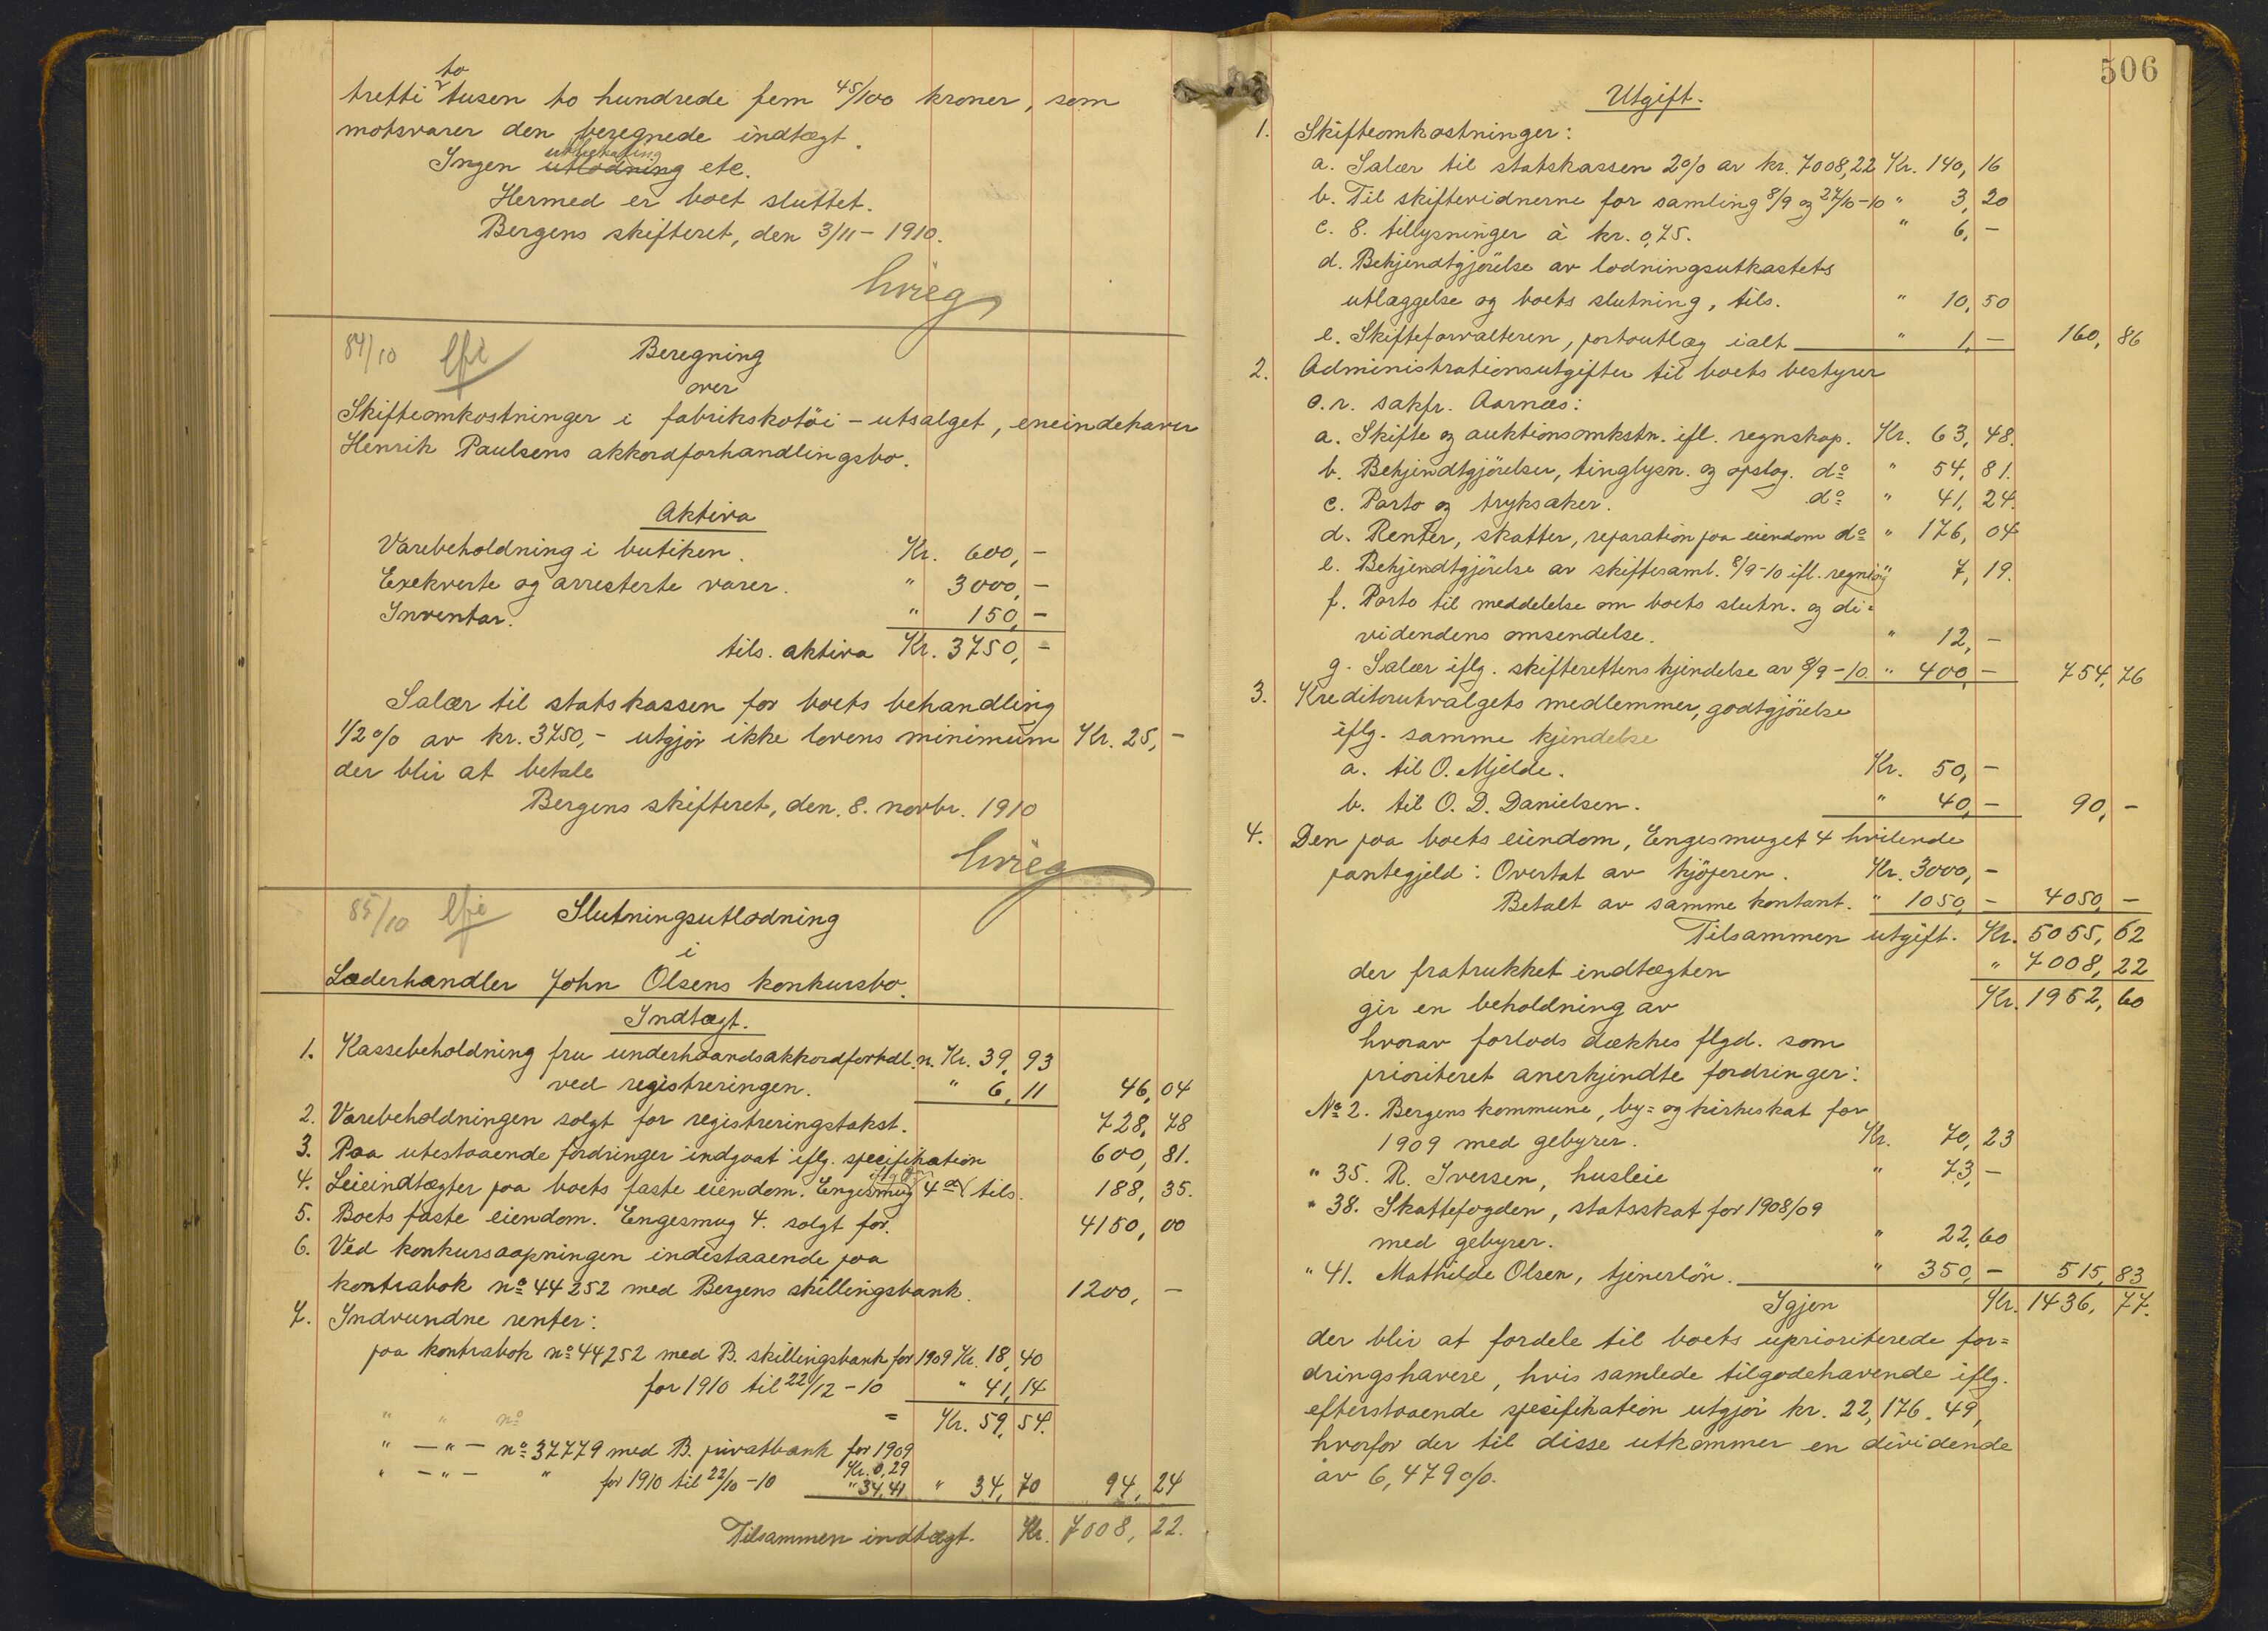 to
tretti tusen to hundrede fem 45/100 kroner, som
motsvarer den beregnede indtægt.
utbetaling
Ingen utlodning etc.
Hermed er boet sluttet.
Bergens skifteret, den 3/11 - 1910.
Grieg
84/10
Beregning
over
Skifteomkostninger i fabrikskotöi - utsalget, eneindehaver
Henrik Paulsens akkordforhandlingsbo.
Aktiva
Varebeholdning i butiken. Kr. 600, -
Exekverte og arresterte varer. " 3000, -
Inventar. " 150, -
tils. aktiva Kr. 3750, -
Salær til statskassen for boets behandling
1/2 % av kr. 3750, - utgjör ikke lovens minimum Kr. 25, -
der blir at betale
Bergens skifteret, den. 8. novbr. 1910
Grieg
85/10 Slutningsutlodning
i
Læderhandler John Olsens konkursbo.
Indtægt.
1. Kassebeholdning fra underhaandsakkordforhdl.n. Kr. 39, 93
ved registreringen. " 6, 11 46, 04
2. Varebeholdningen solgt for registreringstakst. 728, 78
3. Paa utestaaende fordringer indgaat iflg. specifikation 600, 81.
4. Leieindtægter paa boets faste eiendom. Engesmug 4 tils. 188, 35.
5. Boets faste eiendom. Engesmug 4. solgt for. 4150, 00
6. Ved konkursaapningen indestaaende paa
kontrabok no 44252 med Bergens skillingsbank. 1200, -
7. Indvundne renter:
paa kontrabok no 44252 med B. skillingsbank for 1909 Kr. 18, 40
for 1910 til 22/12 - 10 " 41, 14
" " no = Kr. 59, 54.
" - " - no 37779 med B. privatbank for 1909
Kr. 0,29
" - " - " for 1910 til 22/10 - 10 " 34,41 " 34, 70 94, 24
Tilsammen indtægt. Kr. 7008, 22.
506
Utgift.
1. Skifteomkostninger:
a. Salær til statskassen 2% av kr. 7008,22 Kr. 140, 16
b. Til skiftevidnerne for samling 8/9 og 27/10 - 10 " 3, 20
c. 8. tillysninger à kr. 0,75. " 6, -
d. Bekjendtgjörelse av lodningsutkastets
utlæggelse og boets slutning, tils. " 10, 50
e. Skifteforvalteren, portoutlæg ialt " 1, - 160, 86
2. Administrationsutgifter til boets bestyrer
o.r. sakfr. Aarnæs:
a. Skifte og auktionsomkstn. ifl. regnskap. Kr. 63, 48.
b. Bekjendtgjörelser, tinglysn. og opslag. do " 54, 81.
c. Porto og tryksaker. do " 41, 24.
d. Renter, skatter, reparation paa eiendom do " 176, 04
e. Bekjendtgjörelse av skiftesaml. 8/9 - 10 ifl. regning " 7, 19.
f. Porto til meddelelse om boets slutn. og di=
videndens omsendelse. " 12, -
g. Salær iflg. skifterettens kjendelse av 8/9 - 10. " 400, - 754, 76
3. Kreditorutvalgets medlemmer, godtgjörelse
iflg. samme kjendelse
a. til O. Mjelde. Kr. 50, -
b. til O. D. Danielsen. " 40, - 90, -
4. Den paa boets eiendom, Engesmuget 4 hvilende
pantegjeld: Overtat av kjöperen. Kr. 3000, -
Betalt av samme kontant. " 1050, - 4050, -
Tilsammen utgift. Kr. 5055, 62
der fratrukket indtægten " 7008, 22
gir en beholdning av Kr. 1952, 60
hvorav forlods dækkes flgd. som
prioriteret anerkjendte fordringer:
No 2. Bergens kommune, by= og kirkeskat for
1909 med gebyrer. Kr. 70, 23
" 35. R. Iversen, husleie " 73, -
" 38. Skattefogden, statsskat for 1908/09
med gebyrer. " 22, 60
" 41. Mathilde Olsen, tjenerlön. " 350, - 515, 83
Igjen Kr. 1436, 77.
der blir at fordele til boets uprioriterede for=
dringshavere, hvis samlede tilgodehavende iflg.
efterstaaende spesifikation utgjör kr. 22,176.49,
hvorfor der til disse utkommer en dividende
av 6,479%.